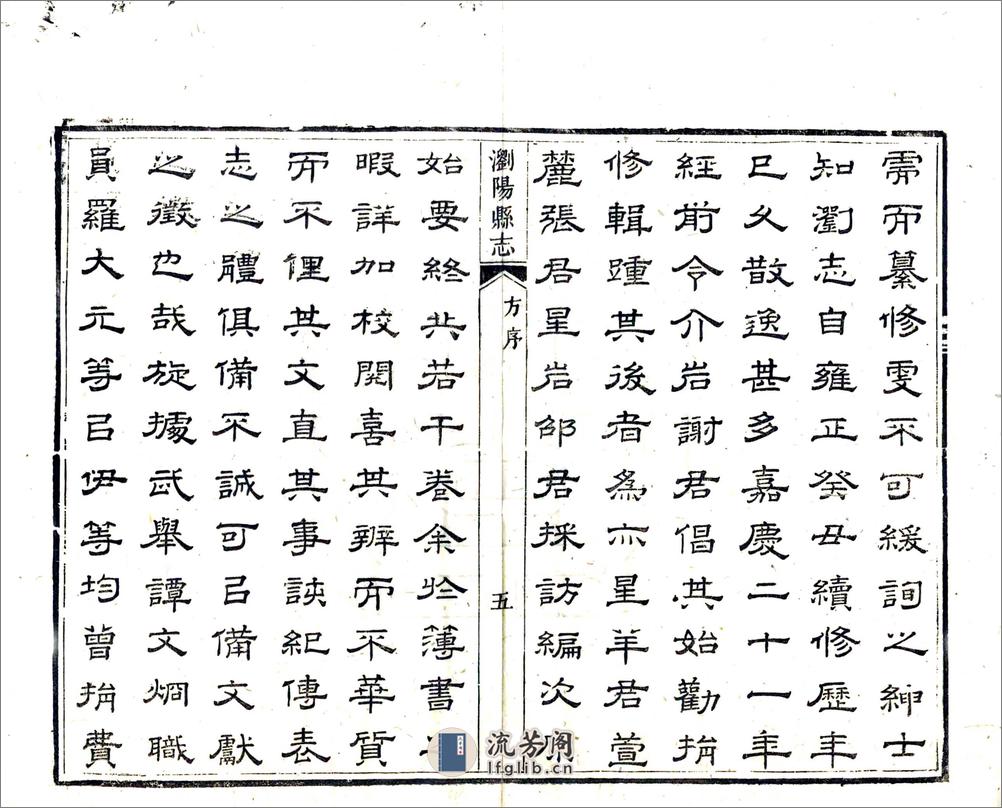 需而纂修雯不可緩詢之紳士
知瀏志自雍正癸丑續修歷年
已久散逸甚多嘉慶二十一年
經前令介岩謝君倡其始勸捐
修輯踵其後者為亦星羊君萱
麓張君星岩邵君採訪編次原
瀏陽縣志
方序
五
始要終共若干卷余於簿書之
暇詳加校閱喜其辨而不華質
而不俚其文直其事該紀傳表
志之體俱備不誠可㠯備文獻
之徵也哉旋據武舉譚文炯職
員羅大元等㠯伊等均曾捐費
流芳阁
lfglib.cn